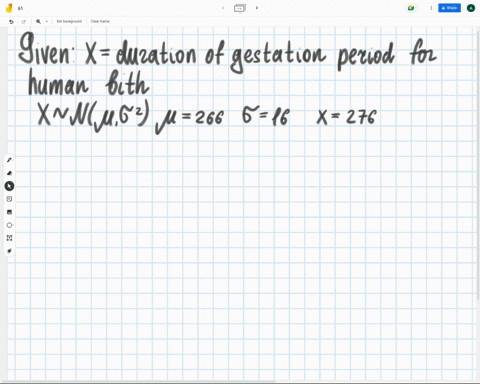 61
Share
A
Set background
Clear frame
Given: X = duration of gestation period for
human bith
X ~ N(μ, σ²) μ = 266 σ = 16 X = 276